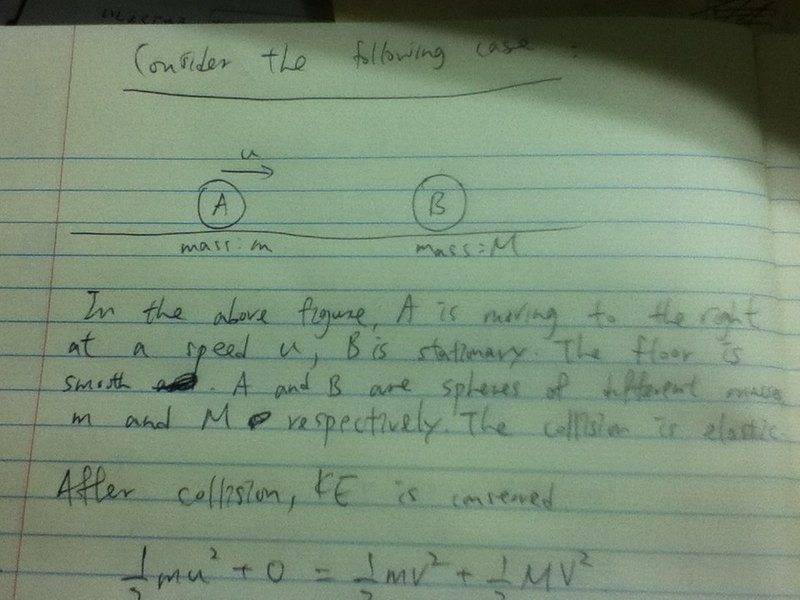 Consider the following case :
u
A B
mass: m mass: M
In the above figure, A is moving to the right
at a speed u, B is stationary. The floor is
smooth . A and B are spheres of different mass
m and M respectively. The collision is elastic.
After collision, KE is conserved
½mu² + 0 = ½mv² + ½MV²